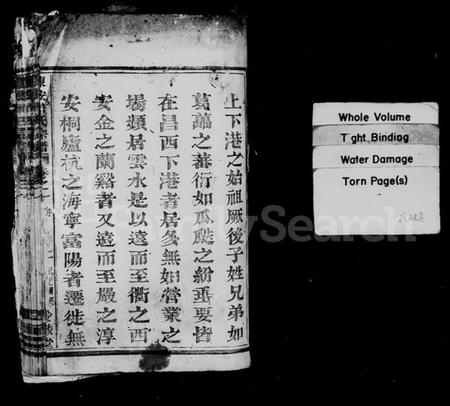 上下港之始祖厥後子姓兄弟如
葛藟之蕃衍如瓜瓞之紛垂要皆
在昌西下港者居多無如營業之
場類居雲水是以遠而至衢之西
安金之蘭谿者又遠而至嚴之淳
安桐廬杭之海寧富陽者遷徙無
Whole Volume
Tight Binding
Water Damage
Torn Page(s)
FamilySearch